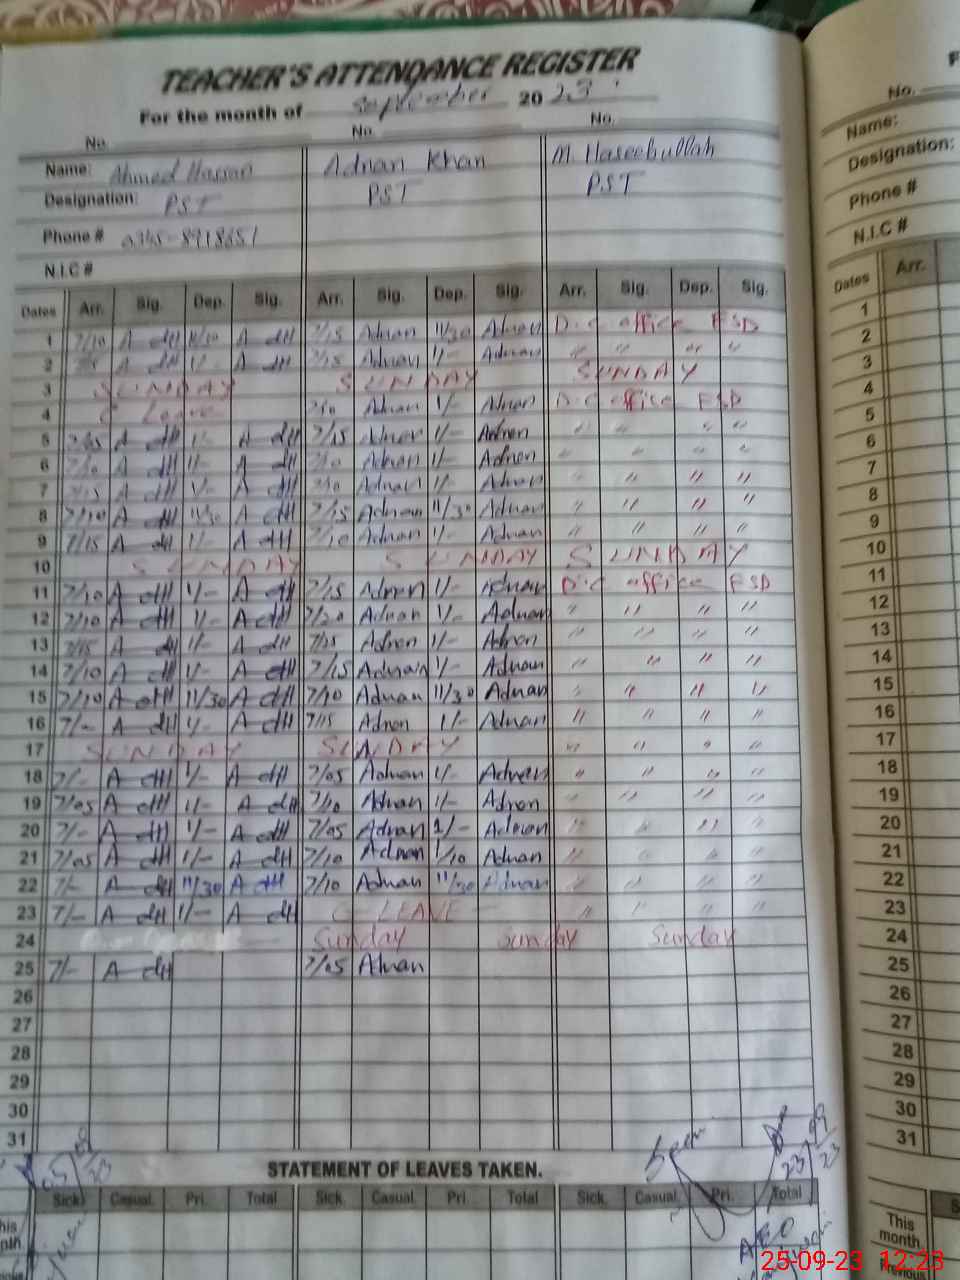 TEACHER'S ATTENDANCE REGISTER
For the month of September 2023
No. No. No.
Name: Ahmed Hassan Adnan Khan M. Haseebullah
Designation: PST PST PST
Phone #
N.I.C #
Dates Arr. Sig. Dep. Sig. Arr. Sig. Dep. Sig. Arr. Sig. Dep. Sig.
1 7/10 A dH 11/30 A dH 7/15 Adnan 11/30 Adnan D.C office FSD
2 A dH 1/- A dH 7/15 Adnan 1/- Adnan " " " "
3 SUNDAY SUNDAY SUNDAY
4 C Leave 7/10 Adnan 1/- Adnan D.C office FSD
5 A dH 1/- A dH 7/15 Adnan 1/- Adnan " " " "
6 7/10 A dH 1/- A dH 7/10 Adnan 1/- Adnan " " " "
7 7/15 A dH 1/- A dH 7/10 Adnan 1/- Adnan " " " "
8 7/10 A dH 11/30 A dH 7/15 Adnan 11/30 Adnan " " " "
9 7/15 A dH 1/- A dH 7/10 Adnan 1/- Adnan " " " "
10 SUNDAY SUNDAY SUNDAY
11 7/10 A dH 1/- A dH 7/15 Adnan 1/- Adnan D.C office FSD
12 7/10 A dH 1/- A dH 7/20 Adnan 1/- Adnan " " " "
13 7/15 A dH 1/- A dH Adnan 1/- Adnan " " " "
14 7/10 A dH 1/- A dH 7/15 Adnan 1/- Adnan " " " "
15 7/10 A dH 11/30 A dH 7/10 Adnan 11/30 Adnan " " " "
16 7/- A dH 1/- A dH 7/15 Adnan 1/- Adnan " " " "
17 SUNDAY SUNDAY " " " "
18 7/- A dH 1/- A dH 7/05 Adnan 1/- Adnan " " " "
19 7/05 A dH 1/- A dH 7/10 Adnan 1/- Adnan " " " "
20 7/- A dH 1/- A dH 7/05 Adnan 1/- Adnan " " " "
21 7/05 A dH 1/- A dH 7/10 Adnan 1/10 Adnan " " " "
22 7/- A dH 11/30 A dH 7/10 Adnan 11/30 Adnan " " " "
23 7/- A dH 1/- A dH C-LEAVE - " " " "
24 Sunday Sunday Sunday
25 7/- A dH 7/05 Adnan
26
27
28
29
30
31
STATEMENT OF LEAVES TAKEN.
Sick Casual Pri. Total Sick. Casual. Pri. Total Sick. Casual. Pri. Total
AEO
No.
Name:
Designation:
Phone #
N.I.C #
Dates Arr.
1
2
3
4
5
6
7
8
9
10
11
12
13
14
15
16
17
18
19
20
21
22
23
24
25
26
27
28
29
30
31
This
month
Previous
25-09-23 12:23